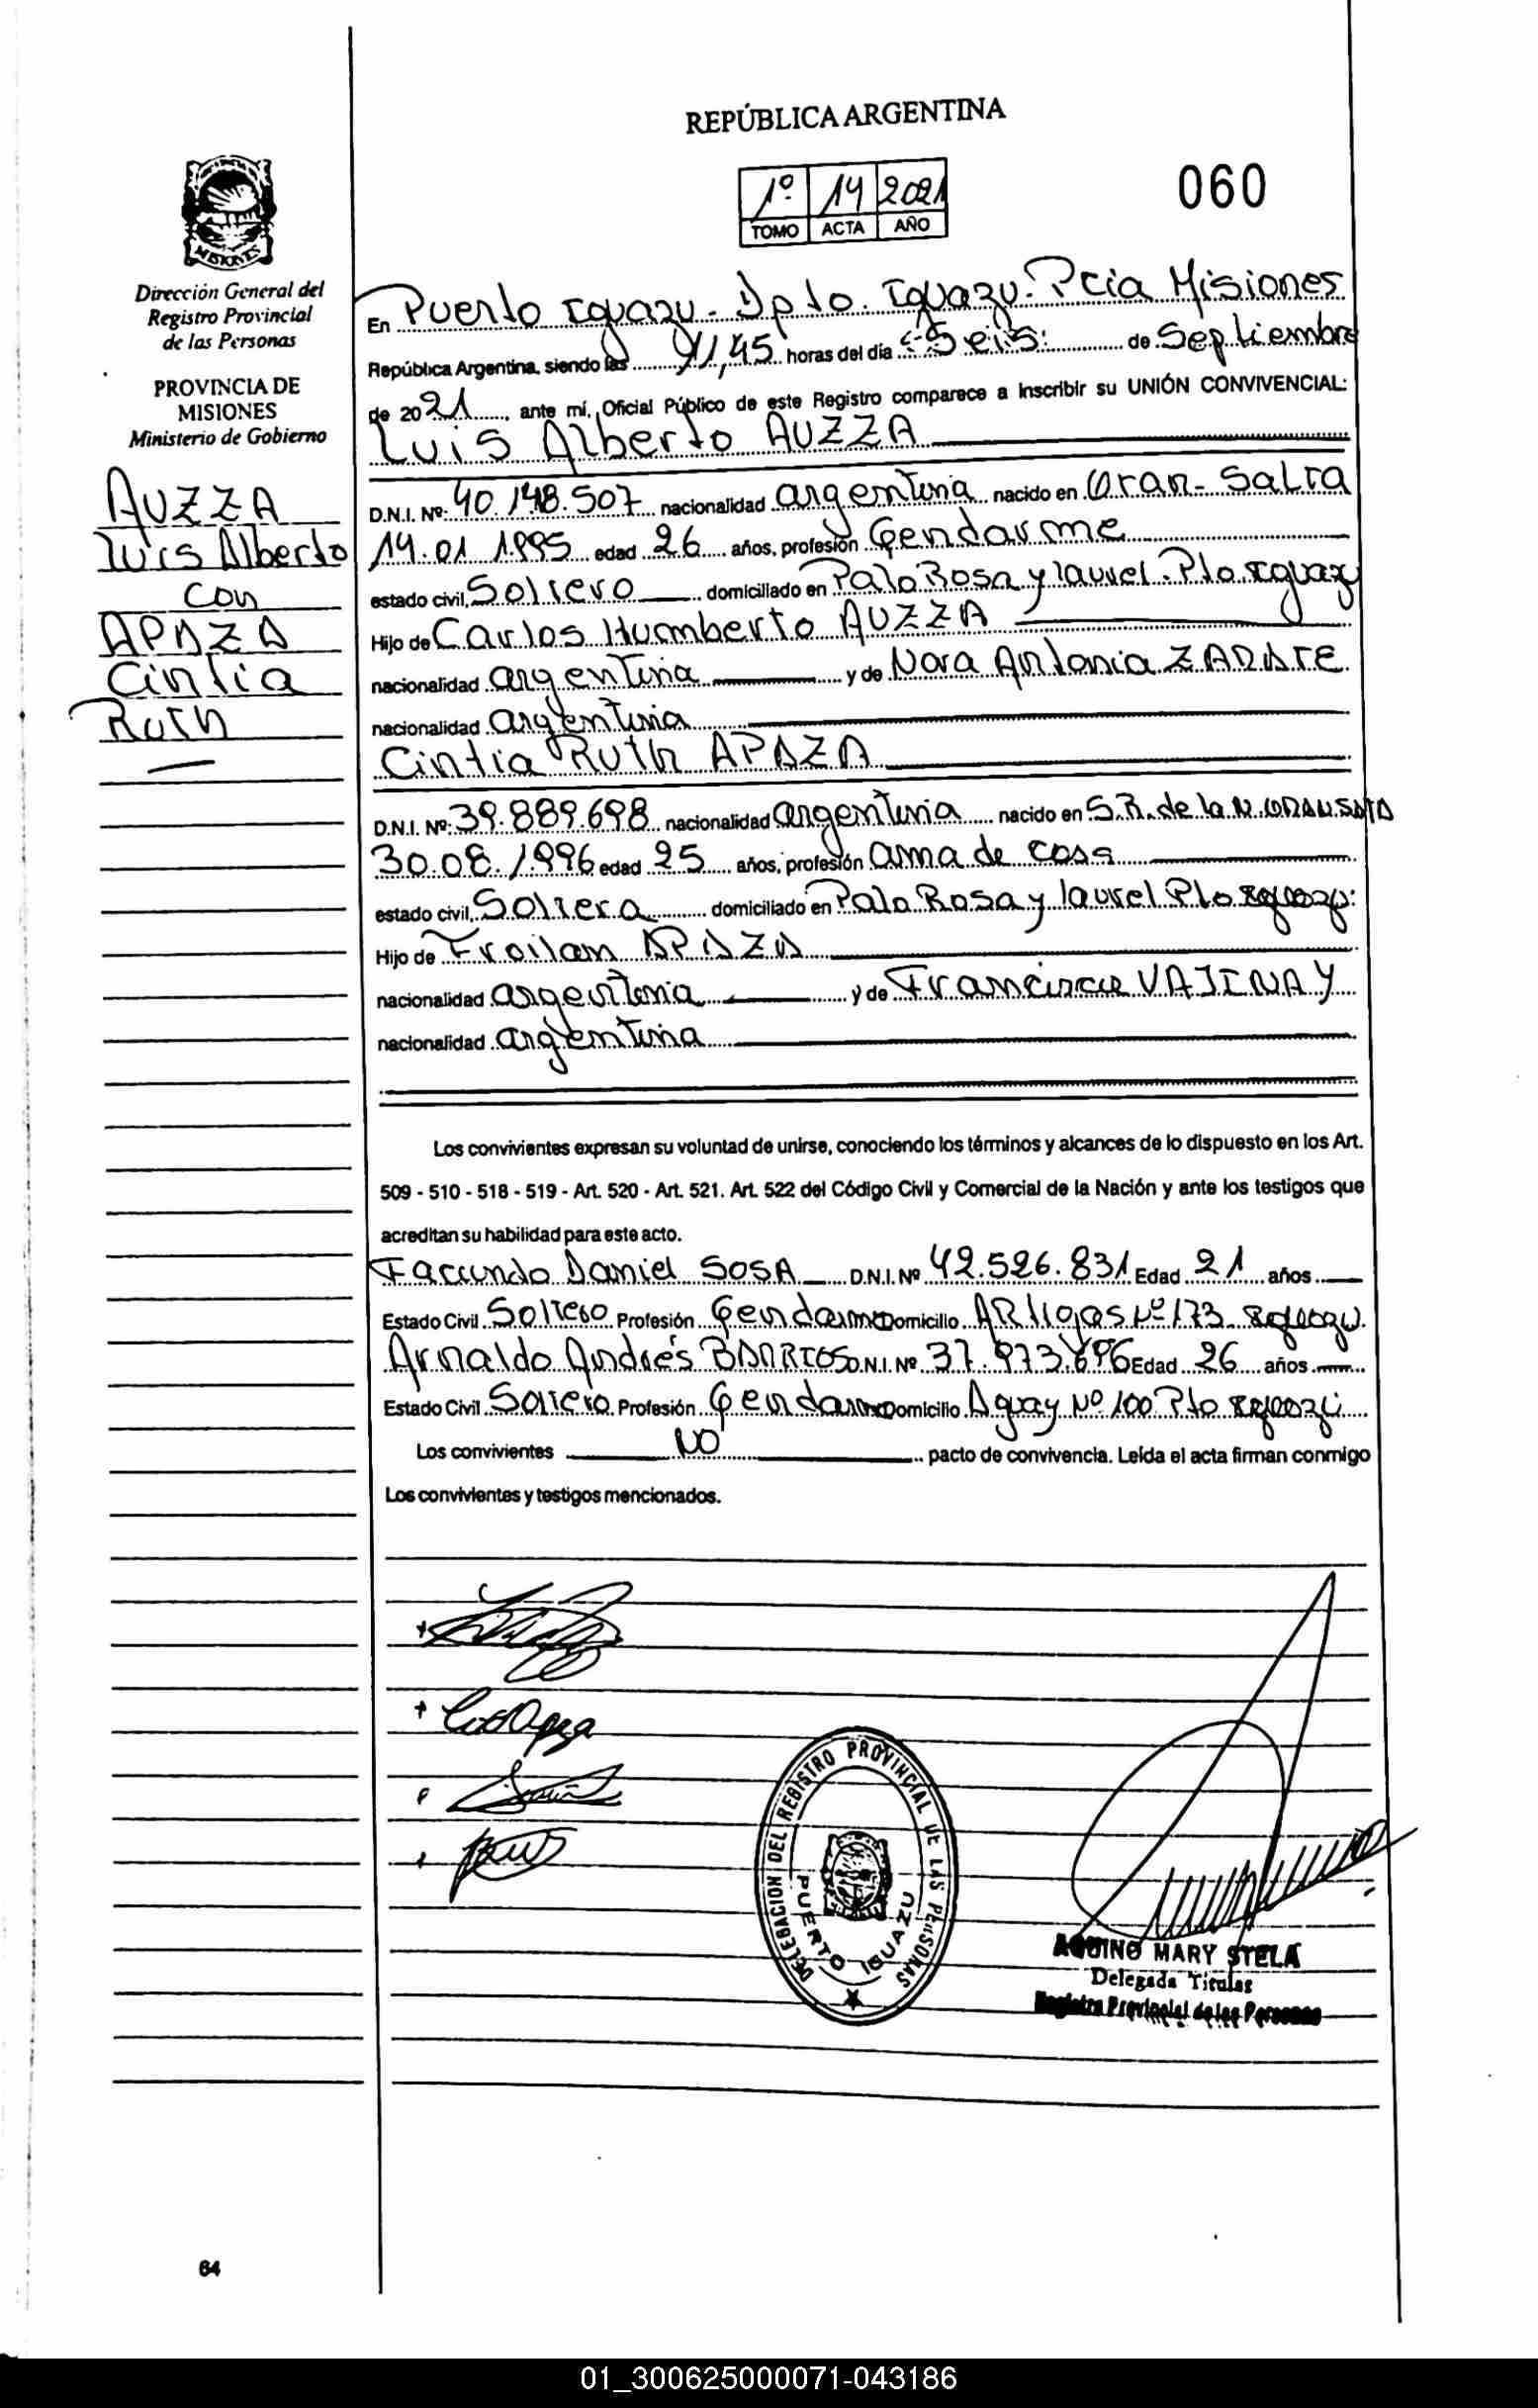 REPÚBLICA ARGENTINA
1º 14 2021
TOMO ACTA AÑO
060
MISIONES
Dirección General del
Registro Provincial
de las Personas
PROVINCIA DE
MISIONES
Ministerio de Gobierno
AUZZA
Luis Alberto
con
APAZA
Cintia
Ruth
En Puerto Iguazu - Dpto. Iguazu. Pcia Misiones
República Argentina, siendo las 11,45 horas del día Seis: de Septiembre
de 2021, ante mí, Oficial Público de este Registro comparece a Inscribir su UNIÓN CONVIVENCIAL:
Luis Alberto AUZZA
D.N.I. Nº: 40.148.507 nacionalidad argentina nacido en Oran - Salta
14.01 1995 edad 26 años, profesión Gendarme
estado civil, Soltero domiciliado en Palo Rosa y laurel. Pto. Iguazu
Hijo de Carlos Humberto AUZZA
nacionalidad argentina y de Nora Antonia ZARATE
nacionalidad argentina
Cintia Ruth APAZA
D.N.I. Nº: 39.889.698 nacionalidad argentina nacido en S.R. de la N. ORAN SALTA
30.08.1996 edad 25 años, profesión ama de casa
estado civil, Soltera domiciliado en Palo Rosa y laurel Pto Iguazu:
Hijo de Froilan APAZA
nacionalidad argentina y de Francisca VAJINAY
nacionalidad argentina
Los convivientes expresan su voluntad de unirse, conociendo los términos y alcances de lo dispuesto en los Art.
509 - 510 - 518 - 519 - Art. 520 - Art. 521. Art. 522 del Código Civil y Comercial de la Nación y ante los testigos que
acreditan su habilidad para este acto.
Facundo Daniel SOSA D.N.I. Nº 42.526.831 Edad 21 años
Estado Civil Soltero Profesión Gendarme Domicilio Artigas Nº 173 Iguazu.
Arnaldo Andrés BARRIOS D.N.I. Nº 37.973.696 Edad 26 años
Estado Civil Soltero Profesión Gendarme Domicilio Aguay Nº 100 Pto Iguazú
Los convivientes NO pacto de convivencia. Leída el acta firman conmigo
Los convivientes y testigos mencionados.
DELEGACION DEL REGISTRO PROVINCIAL DE LAS PERSONAS
PUERTO IGUAZU
AQUINO MARY STELA
Delegada Titular
Registro Provincial de las Personas
64
01_300625000071-043186